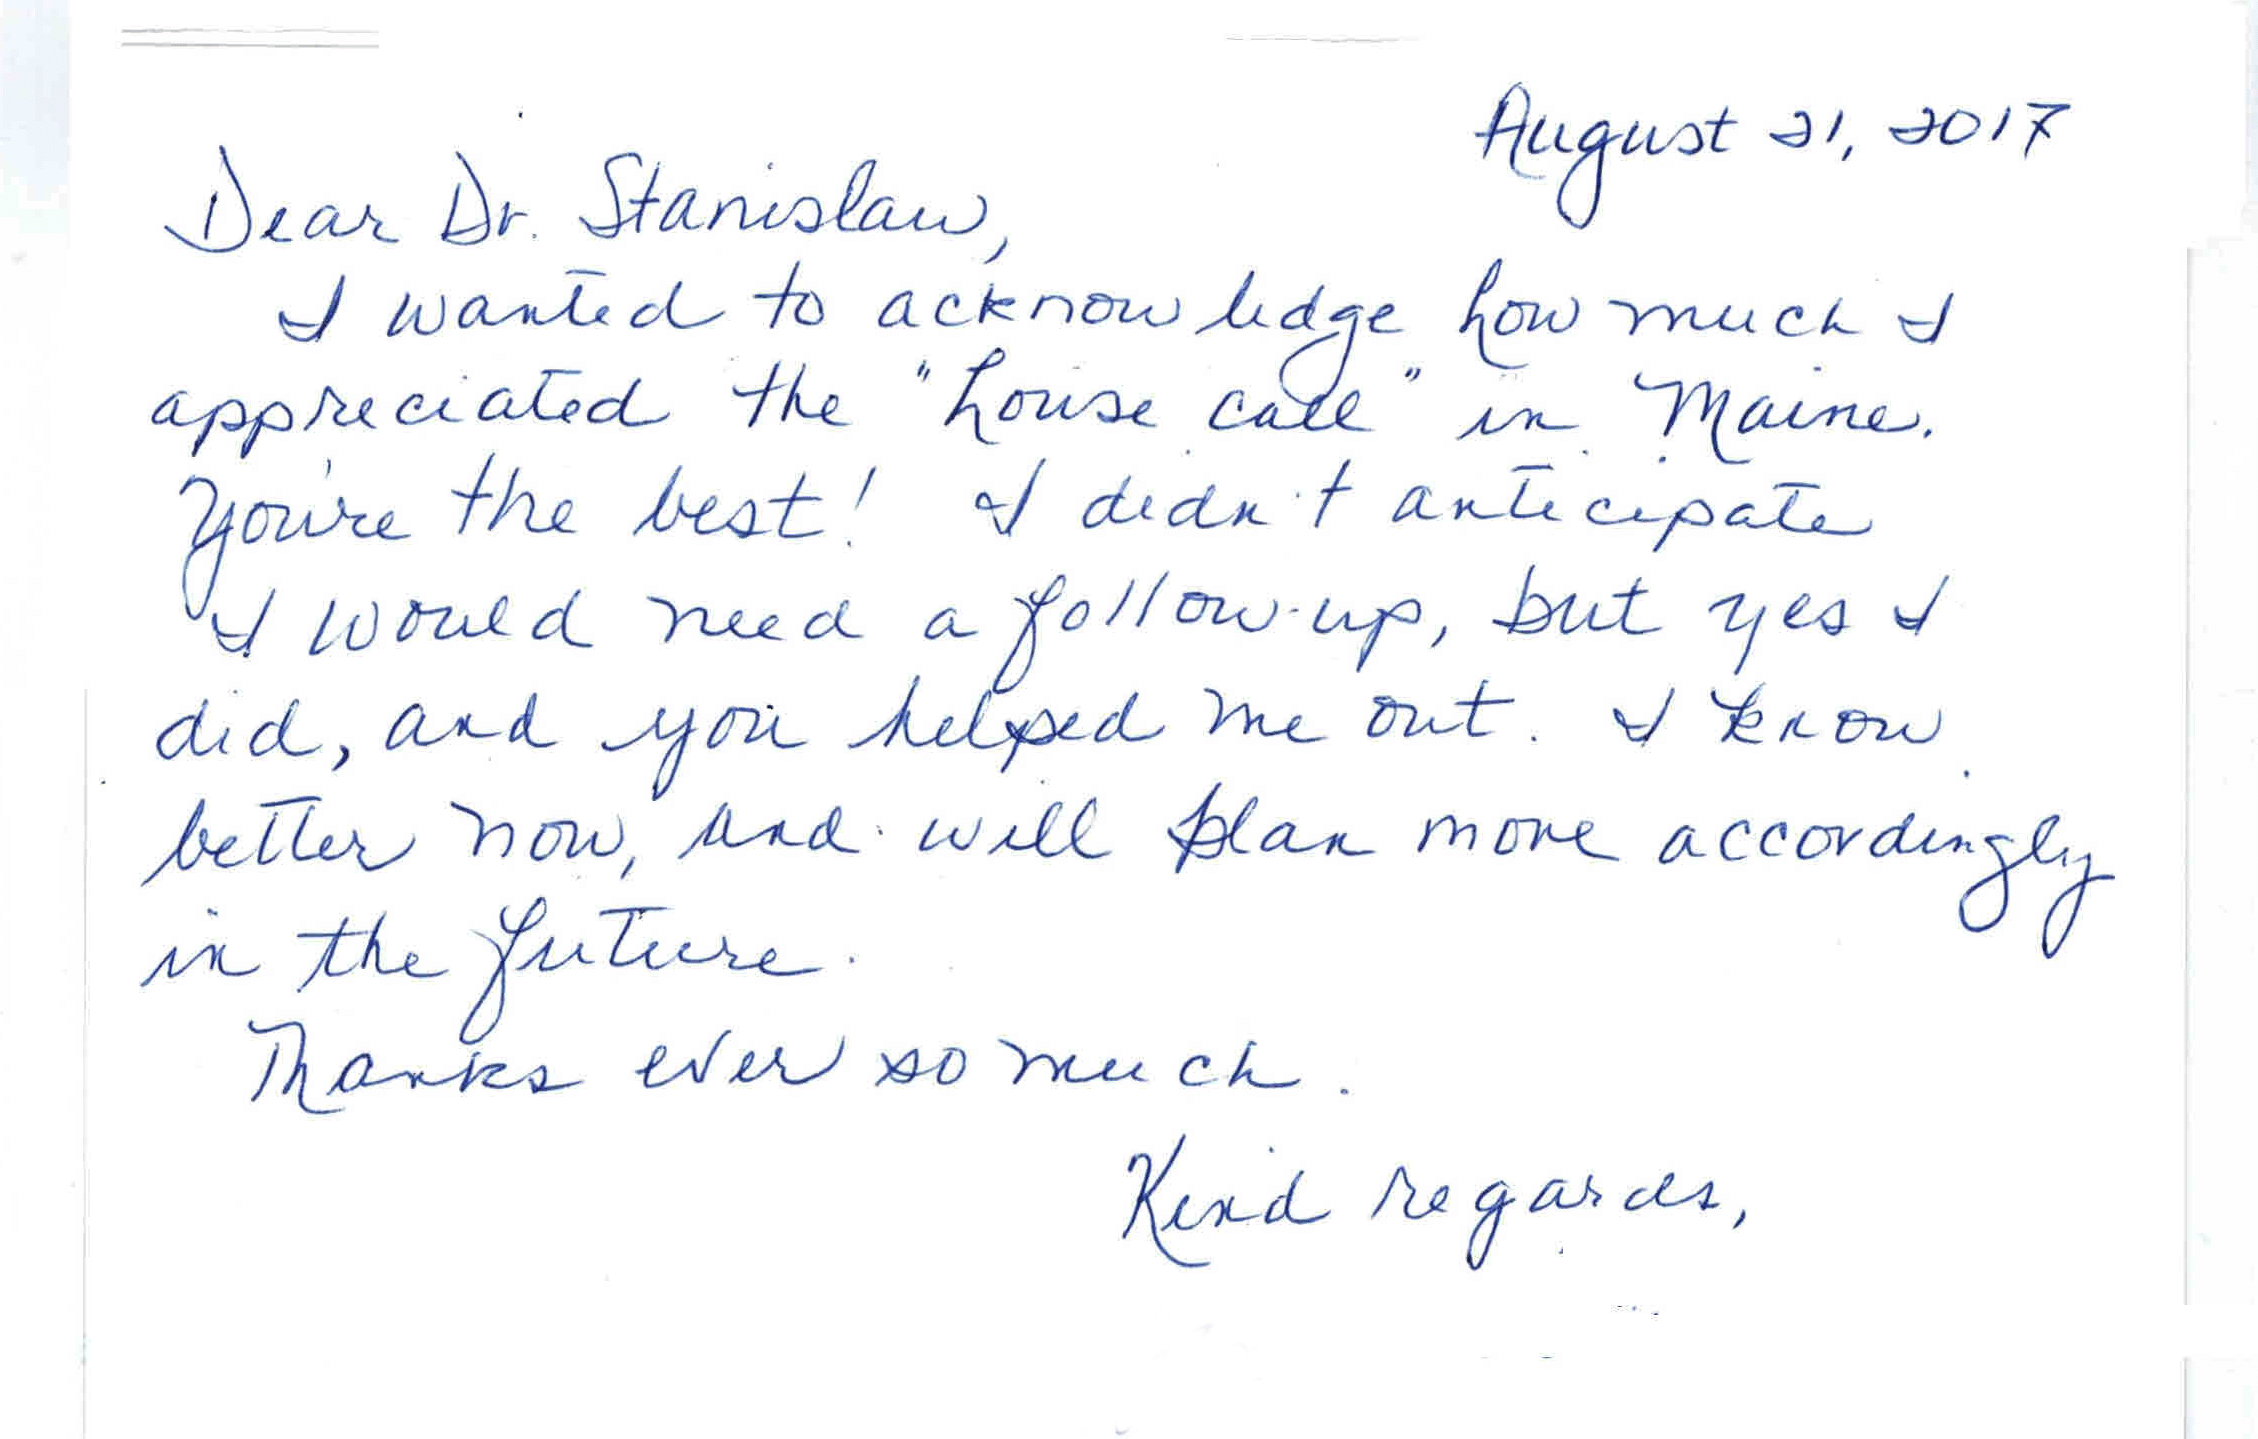 August 21, 2017
Dear Dr. Stanislaw,
I wanted to acknowledge how much I
appreciated the "house call" in Maine.
You're the best! I didn't anticipate
I would need a follow-up, but yes I
did, and you helped me out. I know
better now, and will plan more accordingly
in the future.
Thanks ever so much.
Kind regards,